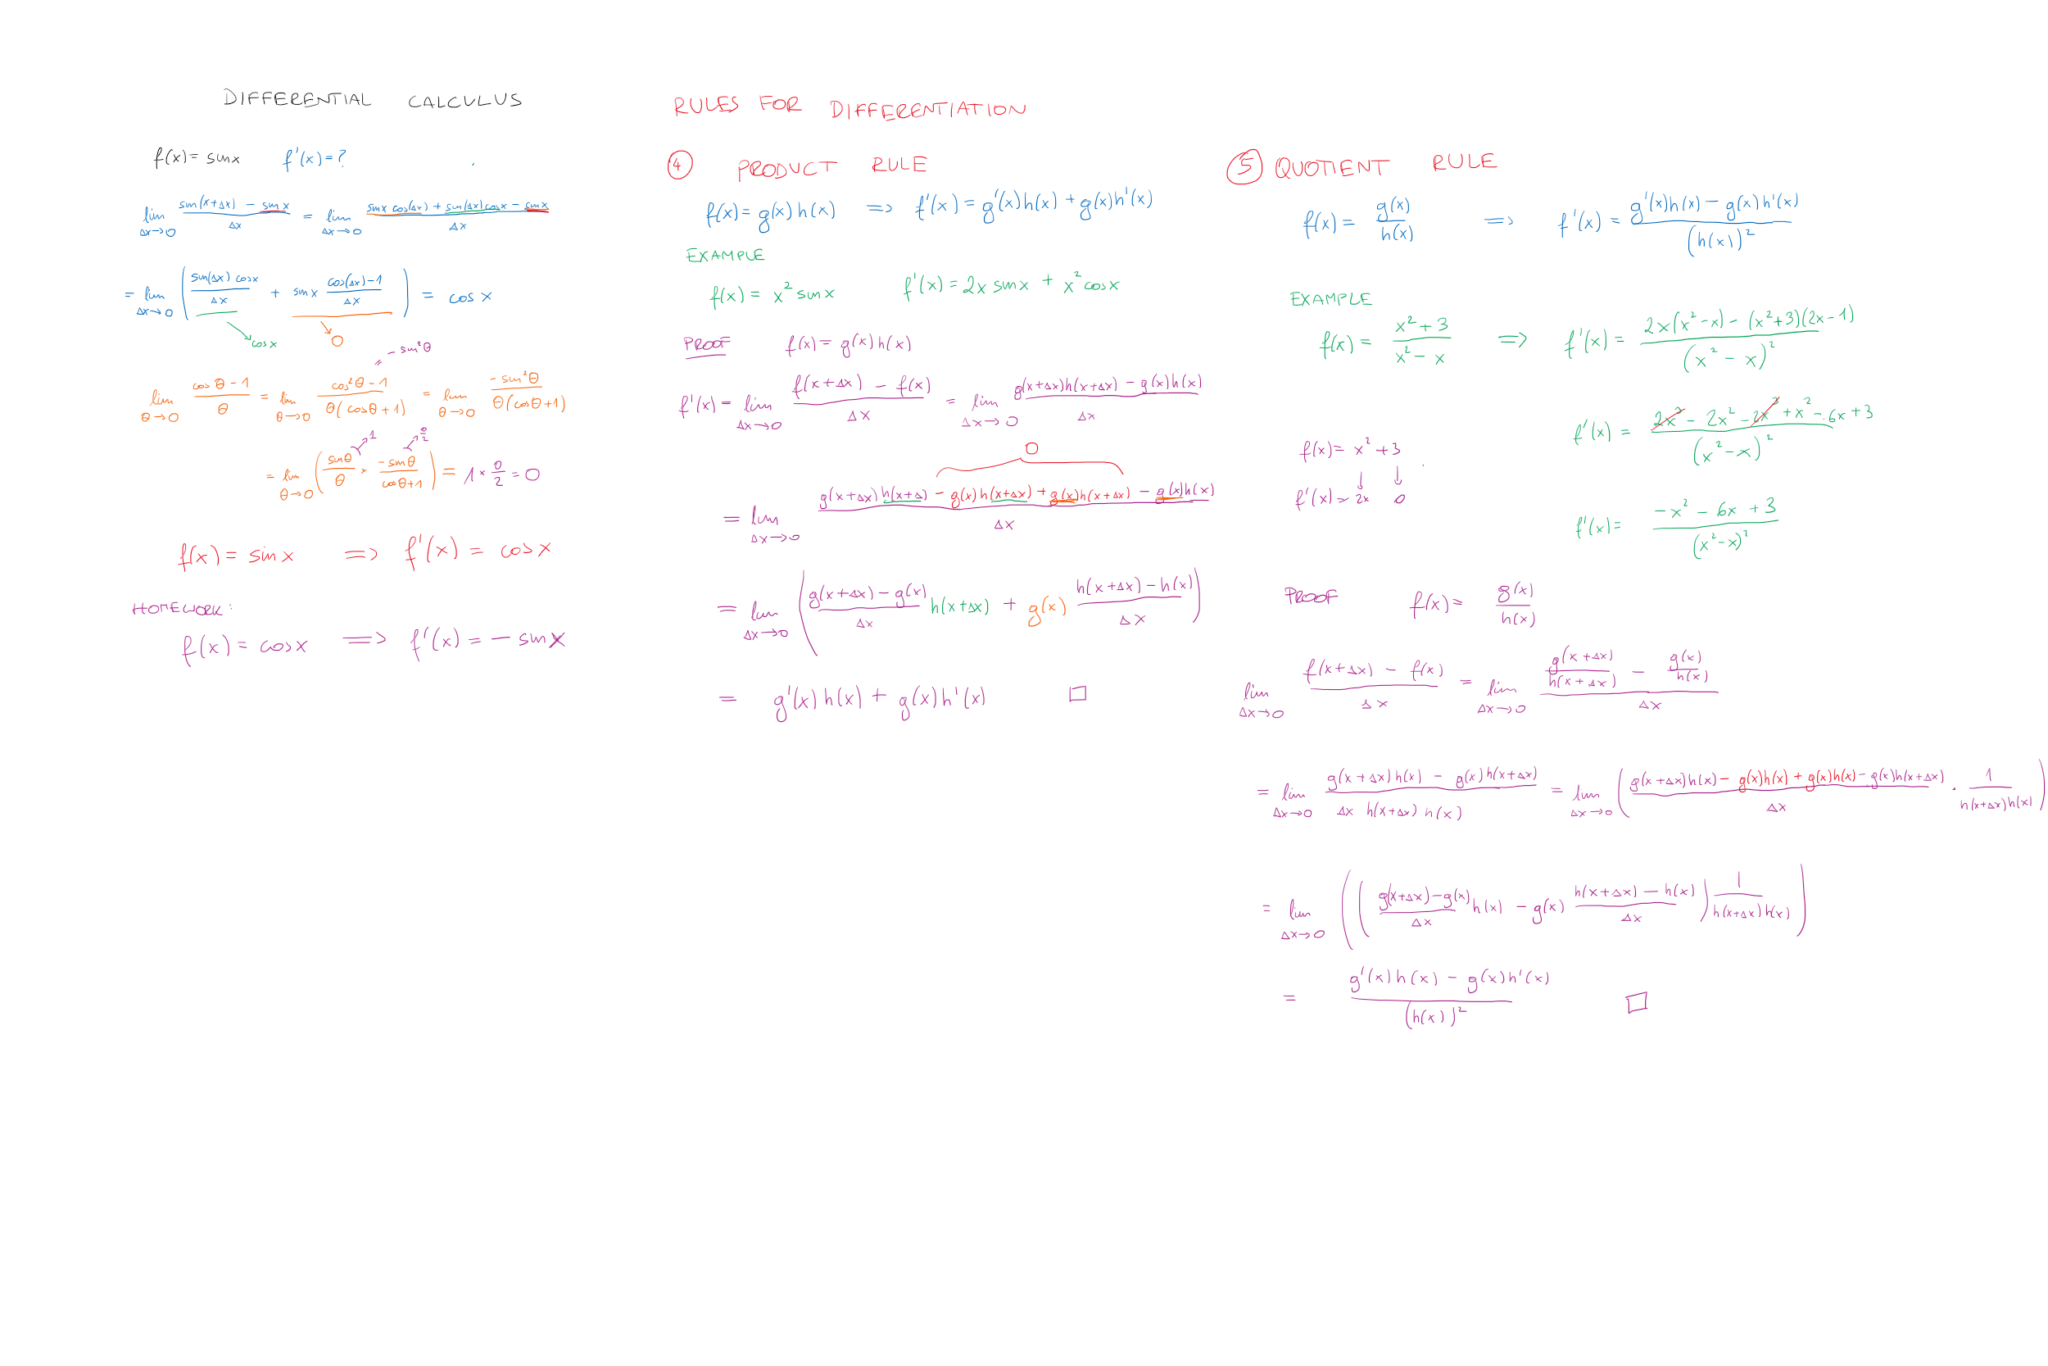 DIFFERENTIAL CALCULUS
f(x) = sin x f'(x) = ?
lim Δx→0 (sin(x+Δx) - sin x)/Δx = lim Δx→0 (sin x cos(Δx) + sin(Δx) cos x - sin x)/Δx
= lim Δx→0 ( sin(Δx) cos x/Δx + sin x (cos(Δx)-1)/Δx ) = cos x
cos x 0
= - sin²θ
lim θ→0 (cos θ - 1)/θ = lim θ→0 (cos²θ - 1)/(θ(cos θ + 1)) = lim θ→0 (- sin²θ)/(θ(cos θ + 1))
1 0/2
= lim θ→0 ( sin θ/θ · (- sin θ)/(cos θ + 1) ) = 1 × 0/2 = 0
f(x) = sin x => f'(x) = cos x
HOMEWORK:
f(x) = cos x => f'(x) = - sin x
RULES FOR DIFFERENTIATION
④ PRODUCT RULE
f(x) = g(x) h(x) => f'(x) = g'(x) h(x) + g(x) h'(x)
EXAMPLE
f(x) = x² sin x f'(x) = 2x sin x + x² cos x
PROOF f(x) = g(x) h(x)
f'(x) = lim Δx→0 (f(x+Δx) - f(x))/Δx = lim Δx→0 (g(x+Δx)h(x+Δx) - g(x)h(x))/Δx
0
= lim Δx→0 (g(x+Δx) h(x+Δ) - g(x) h(x+Δx) + g(x)h(x+Δx) - g(x)h(x))/Δx
= lim Δx→0 ( (g(x+Δx) - g(x))/Δx h(x+Δx) + g(x) (h(x+Δx) - h(x))/Δx )
= g'(x) h(x) + g(x) h'(x) □
⑤ QUOTIENT RULE
f(x) = g(x)/h(x) => f'(x) = (g'(x)h(x) - g(x) h'(x))/(h(x))²
EXAMPLE
f(x) = (x² + 3)/(x² - x) => f'(x) = (2x(x² - x) - (x² + 3)(2x - 1))/(x² - x)²
f'(x) = (2x³ - 2x² - 2x³ + x² - 6x + 3)/(x² - x)²
f(x) = x² + 3
f'(x) = 2x 0
f'(x) = (-x² - 6x + 3)/(x² - x)²
PROOF f(x) = g(x)/h(x)
lim Δx→0 (f(x+Δx) - f(x))/Δx = lim Δx→0 (g(x+Δx)/h(x+Δx) - g(x)/h(x))/Δx
= lim Δx→0 (g(x+Δx) h(x) - g(x) h(x+Δx))/(Δx h(x+Δx) h(x)) = lim Δx→0 ( (g(x+Δx)h(x) - g(x)h(x) + g(x)h(x) - g(x)h(x+Δx))/Δx · 1/(h(x+Δx)h(x)) )
= lim Δx→0 ( ( (g(x+Δx) - g(x))/Δx h(x) - g(x) (h(x+Δx) - h(x))/Δx ) 1/(h(x+Δx) h(x)) )
= (g'(x) h(x) - g(x) h'(x))/(h(x))² □